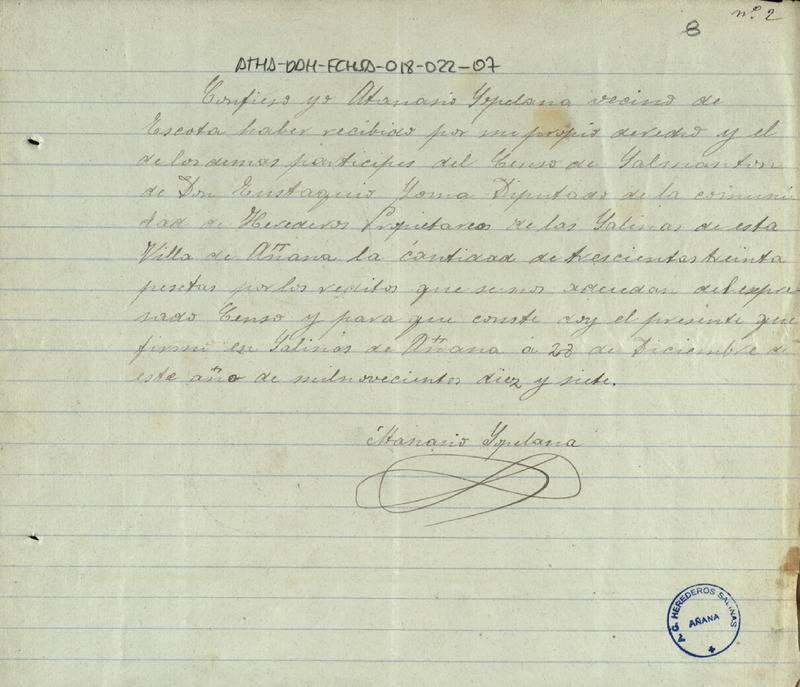 nº 2
8
ATHA-DAH-FCHSA-018-022-07
Confieso yo Atanasio Yopelana vecino de
Escota haber recibido por mi propio deredro y el
de los demas participes del Censo de Salmanton
de Don Eustaquio Yoma Diputado de la comuni
dad de Herederos Propietareos de las Salinas de esta
Villa de Añana la cantidad de trescientas treinta
pesetas por los reditos que se nos adeudan del expre-
sado Censo y para que conste doy el presente que
firmo en Salinas de Añana á 23 de Diciembre de
este año de mil novecientos diez y siete.
Atanasio Yopelana
A. G. HEREDEROS SALINAS
AÑANA